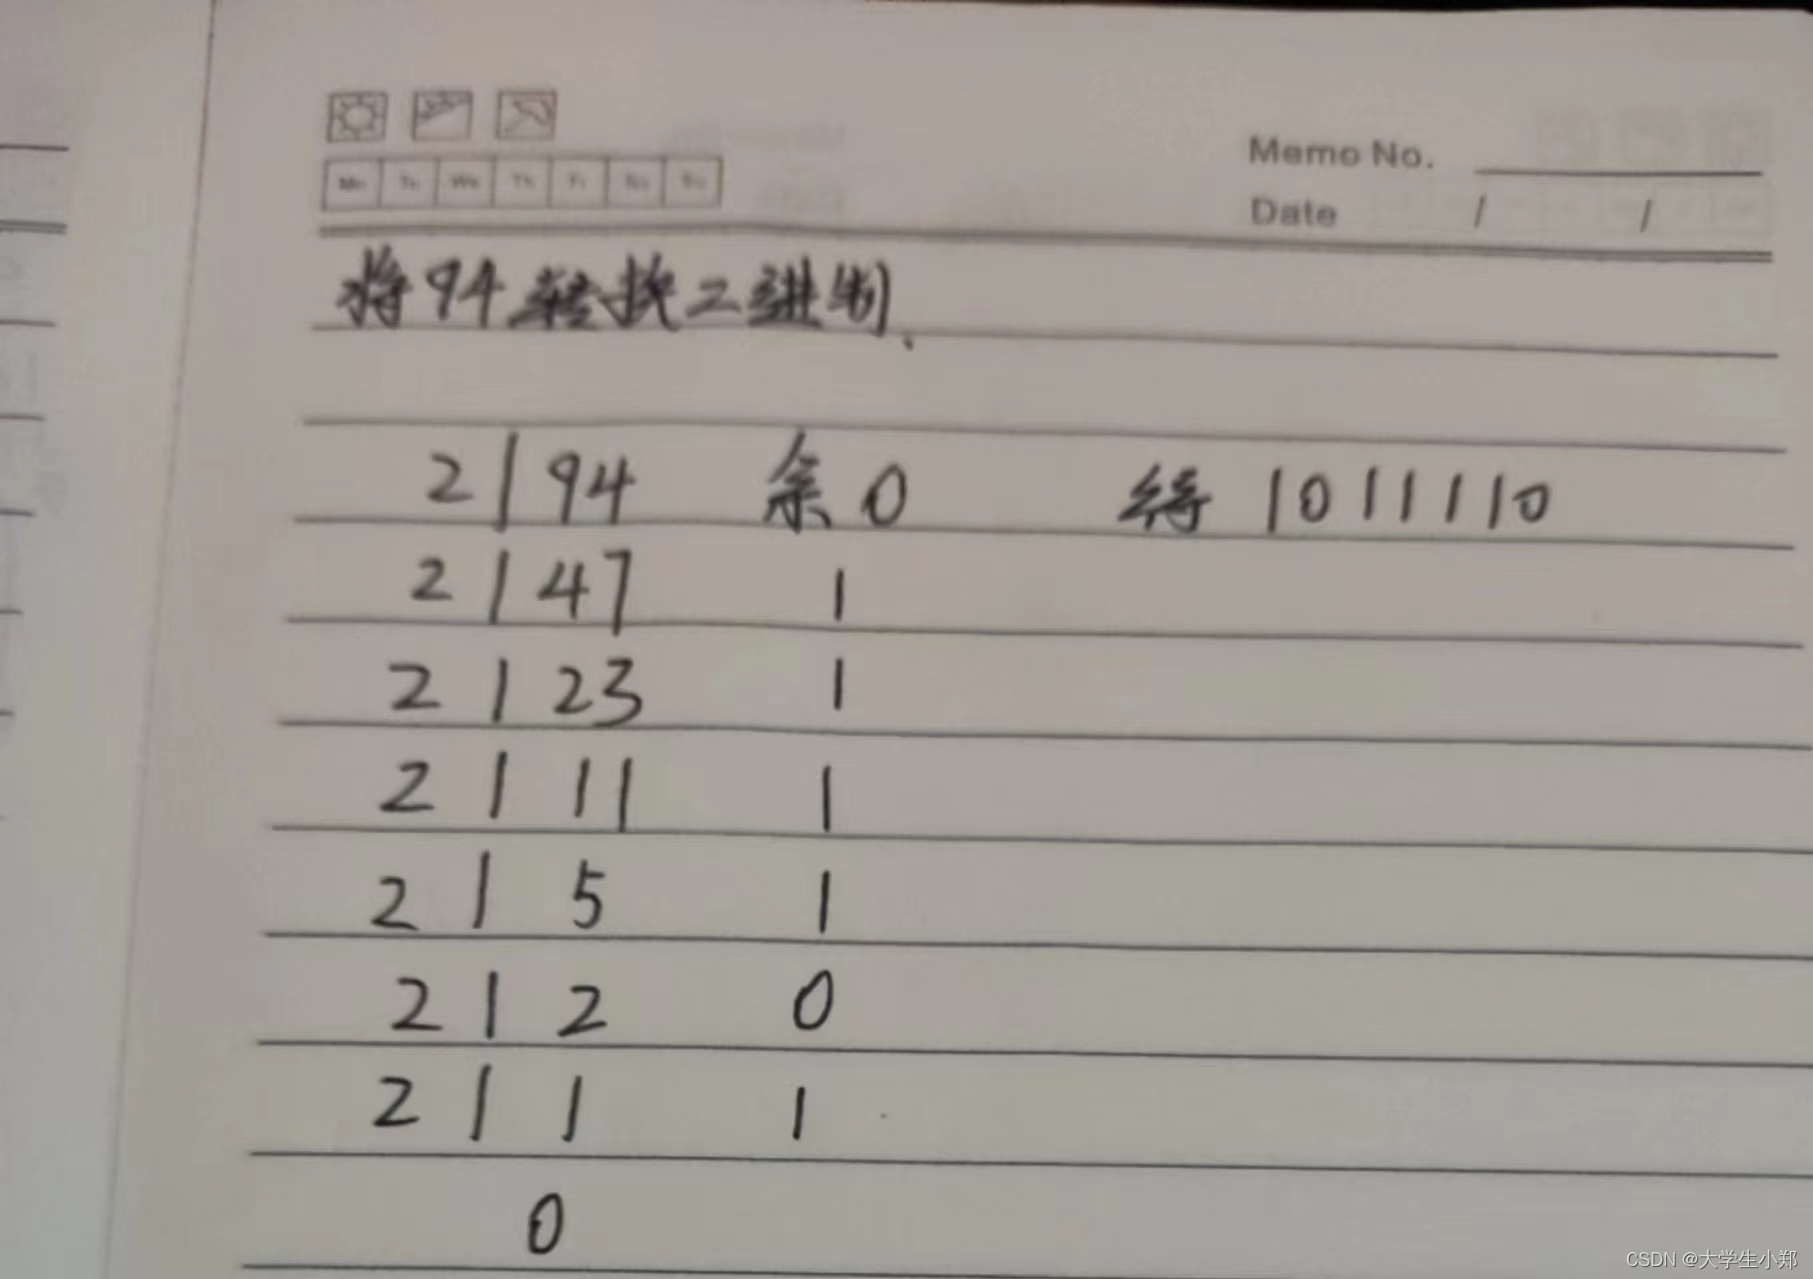 Mo Tu We Th Fr Sa Su
Memo No.
Date / /
将94转换二进制、
2 | 94 余0 得 1011110
2 | 47 1
2 | 23 1
2 | 11 1
2 | 5 1
2 | 2 0
2 | 1 1
0
CSDN @大学生小郑